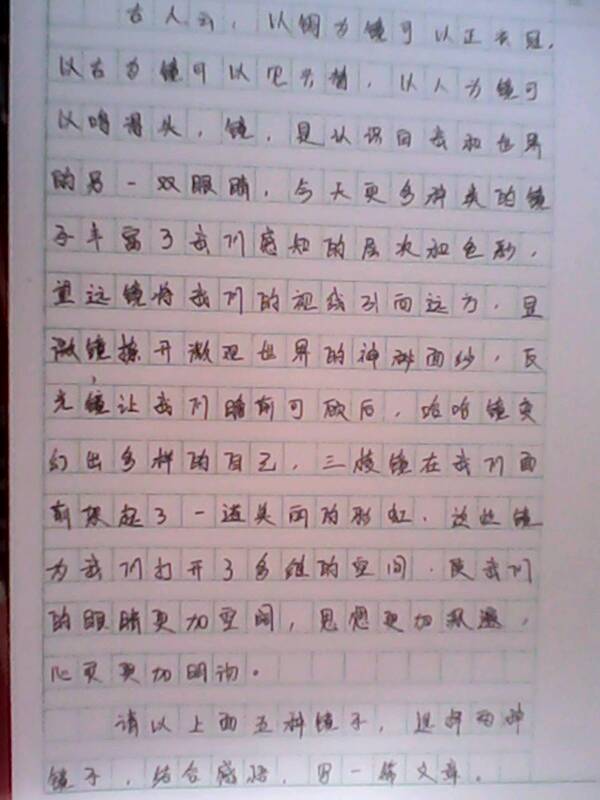 古人云，以铜为镜可以正衣冠，
以古为镜可以见兴替，以人为镜可
以明得失，镜，是认识自我和世界
的另一双眼睛，今天更多种类的镜
子丰富了我们感知的层次和色彩，
望远镜将我们的视线引向远方，显
微镜撩开微观世界的神秘面纱，反
光镜让我们瞻前可顾后，哈哈镜变
幻出多样的自己，三棱镜在我们面
前架起了一道美丽的彩虹，这些镜
为我们打开了多维的空间，使我们
的眼睛更加空阔，思想更加飘逸，
心灵更加明询。
请以上面五种镜子，选择两种
镜子，结合感悟，写一篇文章。